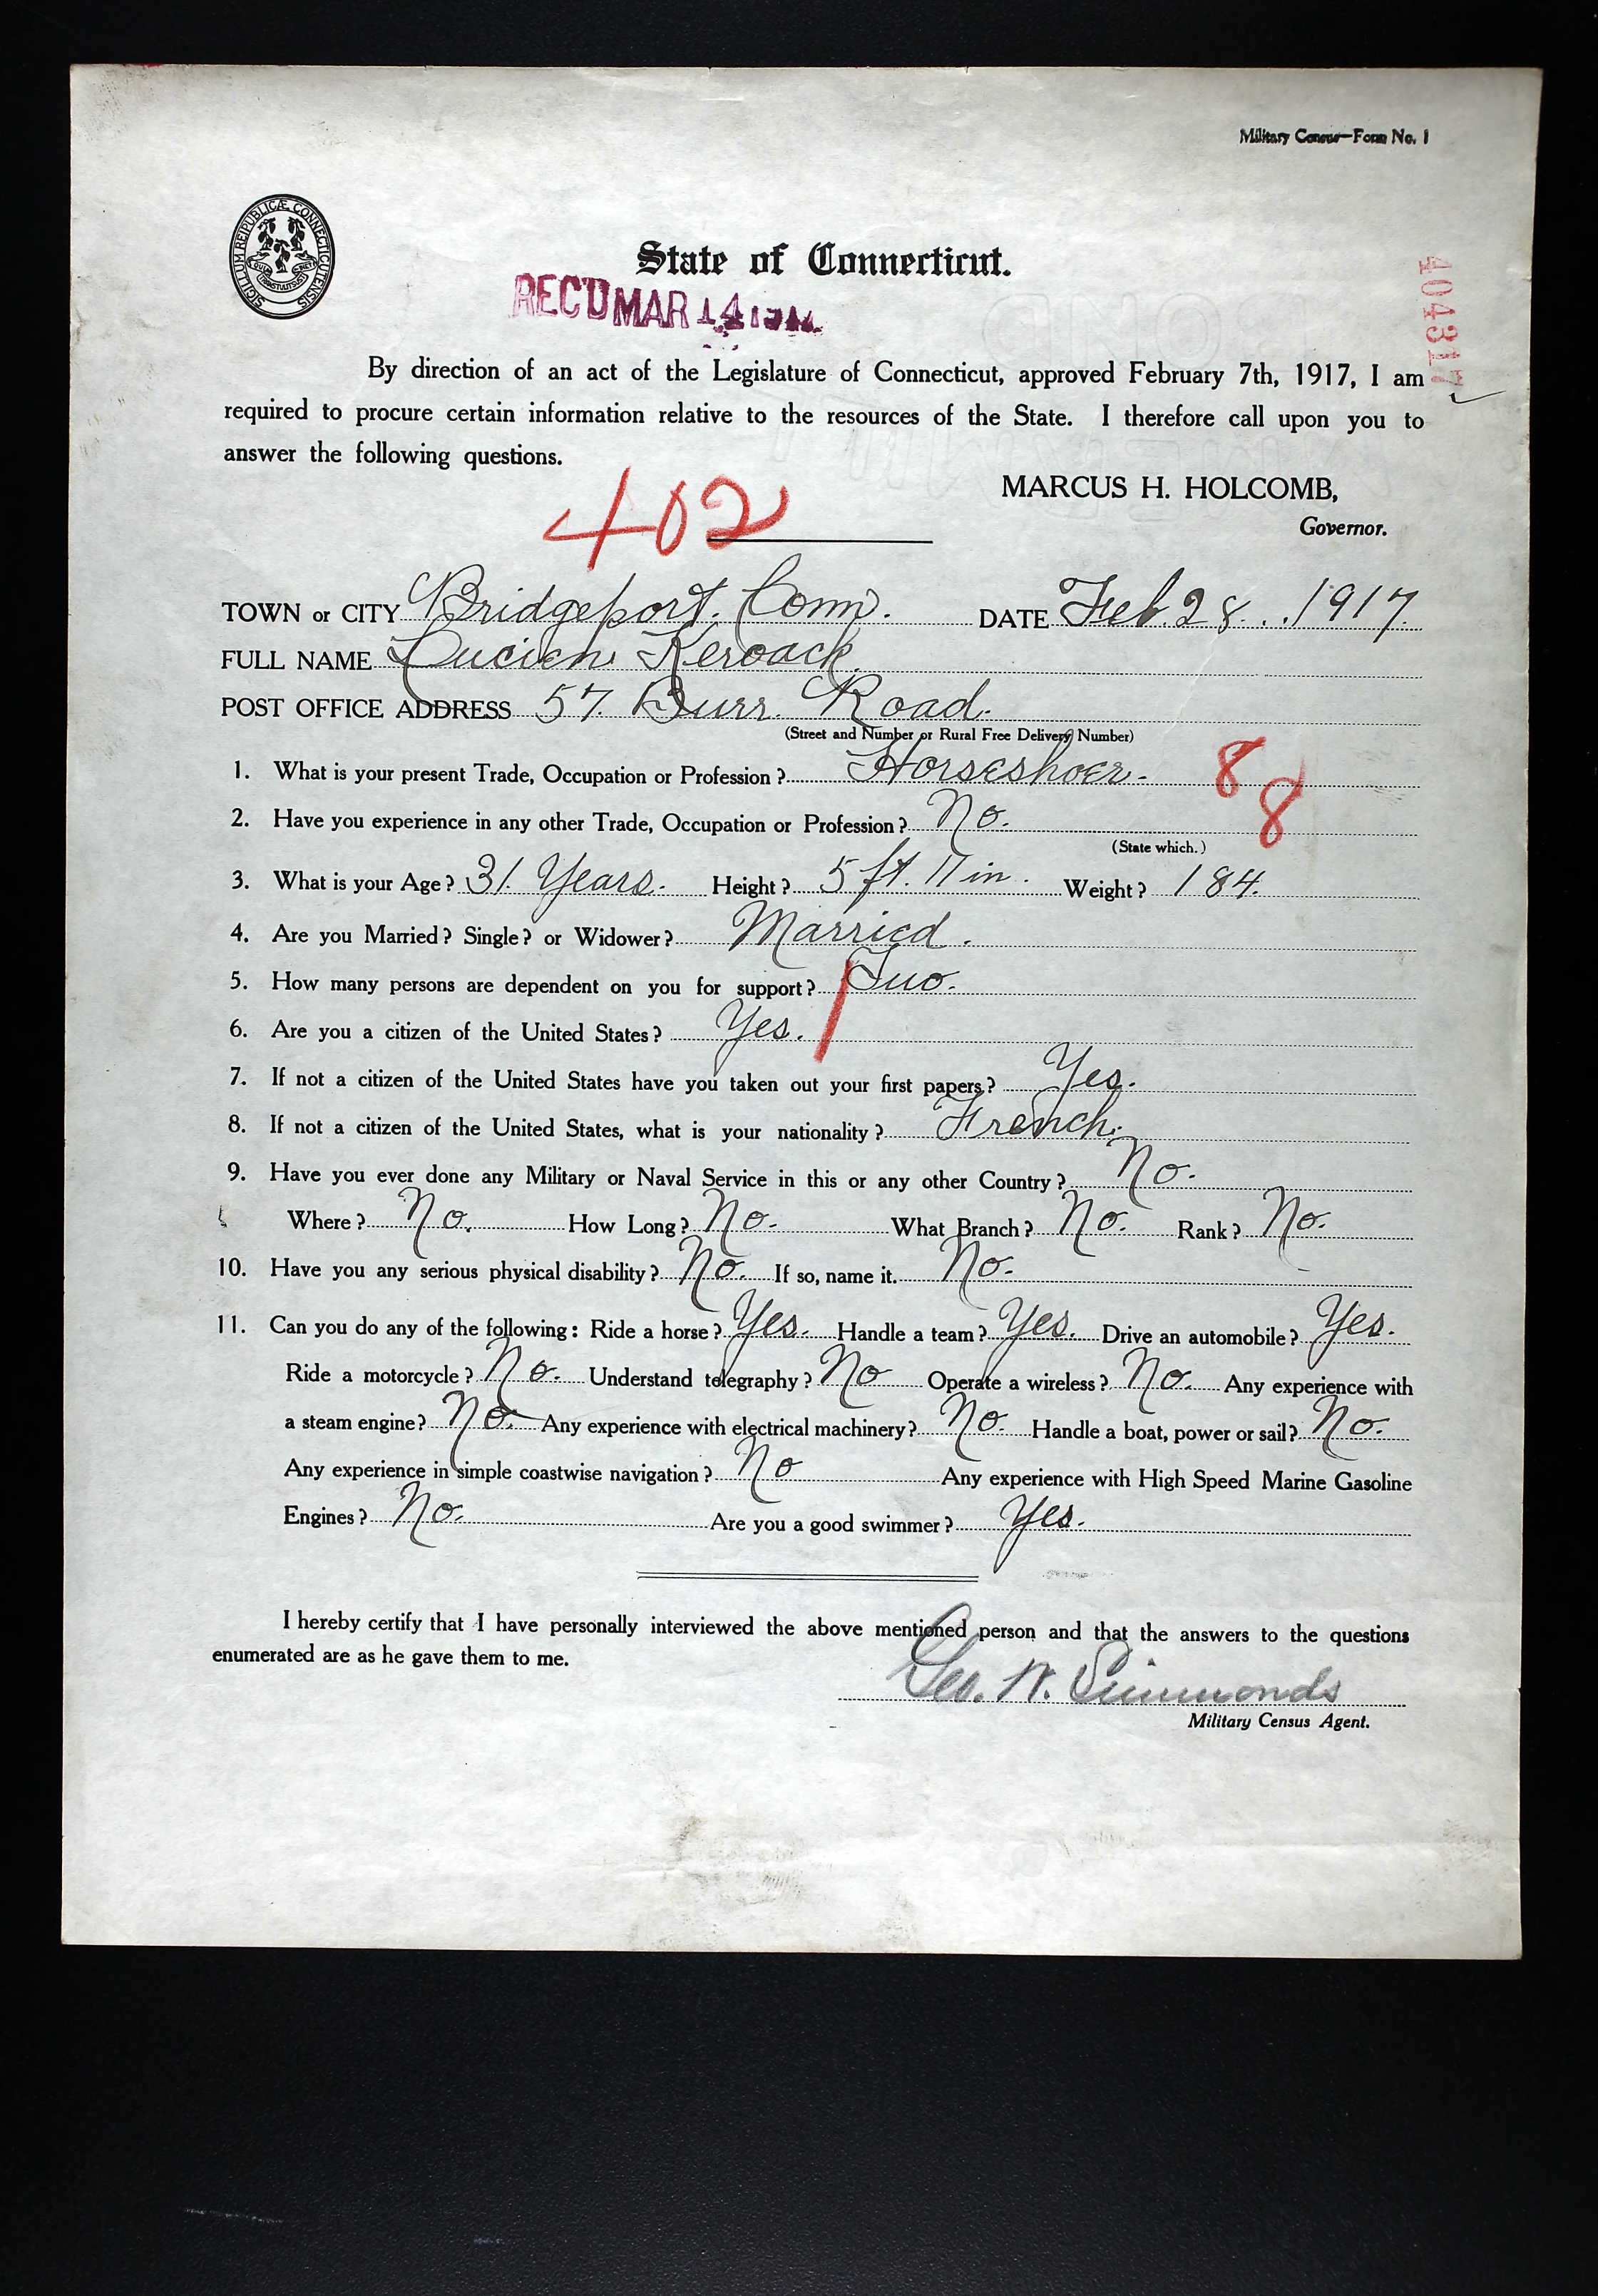 Military Census—Form No. 1
SIGILLUM REIPUBLICÆ CONNECTICUTENSIS
State of Connecticut.
REC'D MAR 14
404317
By direction of an act of the Legislature of Connecticut, approved February 7th, 1917, I am
required to procure certain information relative to the resources of the State. I therefore call upon you to
answer the following questions.
MARCUS H. HOLCOMB,
Governor.
402
TOWN or CITY Bridgeport. Conn. DATE Feb. 28. 1917.
FULL NAME Lucien Keroack.
POST OFFICE ADDRESS 57. Burr. Road.
(Street and Number or Rural Free Delivery Number)
1. What is your present Trade, Occupation or Profession? Horseshoer. 88
2. Have you experience in any other Trade, Occupation or Profession? No.
(State which.)
3. What is your Age? 31. Years. Height? 5 ft. 11 in. Weight? 184.
4. Are you Married? Single? or Widower? Married.
5. How many persons are dependent on you for support? Two.
6. Are you a citizen of the United States? Yes.
7. If not a citizen of the United States have you taken out your first papers? Yes.
8. If not a citizen of the United States, what is your nationality? French.
9. Have you ever done any Military or Naval Service in this or any other Country? No.
Where? No. How Long? No. What Branch? No. Rank? No.
10. Have you any serious physical disability? No. If so, name it. No.
11. Can you do any of the following: Ride a horse? Yes. Handle a team? Yes. Drive an automobile? Yes.
Ride a motorcycle? No. Understand telegraphy? No Operate a wireless? No. Any experience with
a steam engine? No. Any experience with electrical machinery? No. Handle a boat, power or sail? No.
Any experience in simple coastwise navigation? No Any experience with High Speed Marine Gasoline
Engines? No. Are you a good swimmer? Yes.
I hereby certify that I have personally interviewed the above mentioned person and that the answers to the questions
enumerated are as he gave them to me.
Geo. W. Simmonds
Military Census Agent.